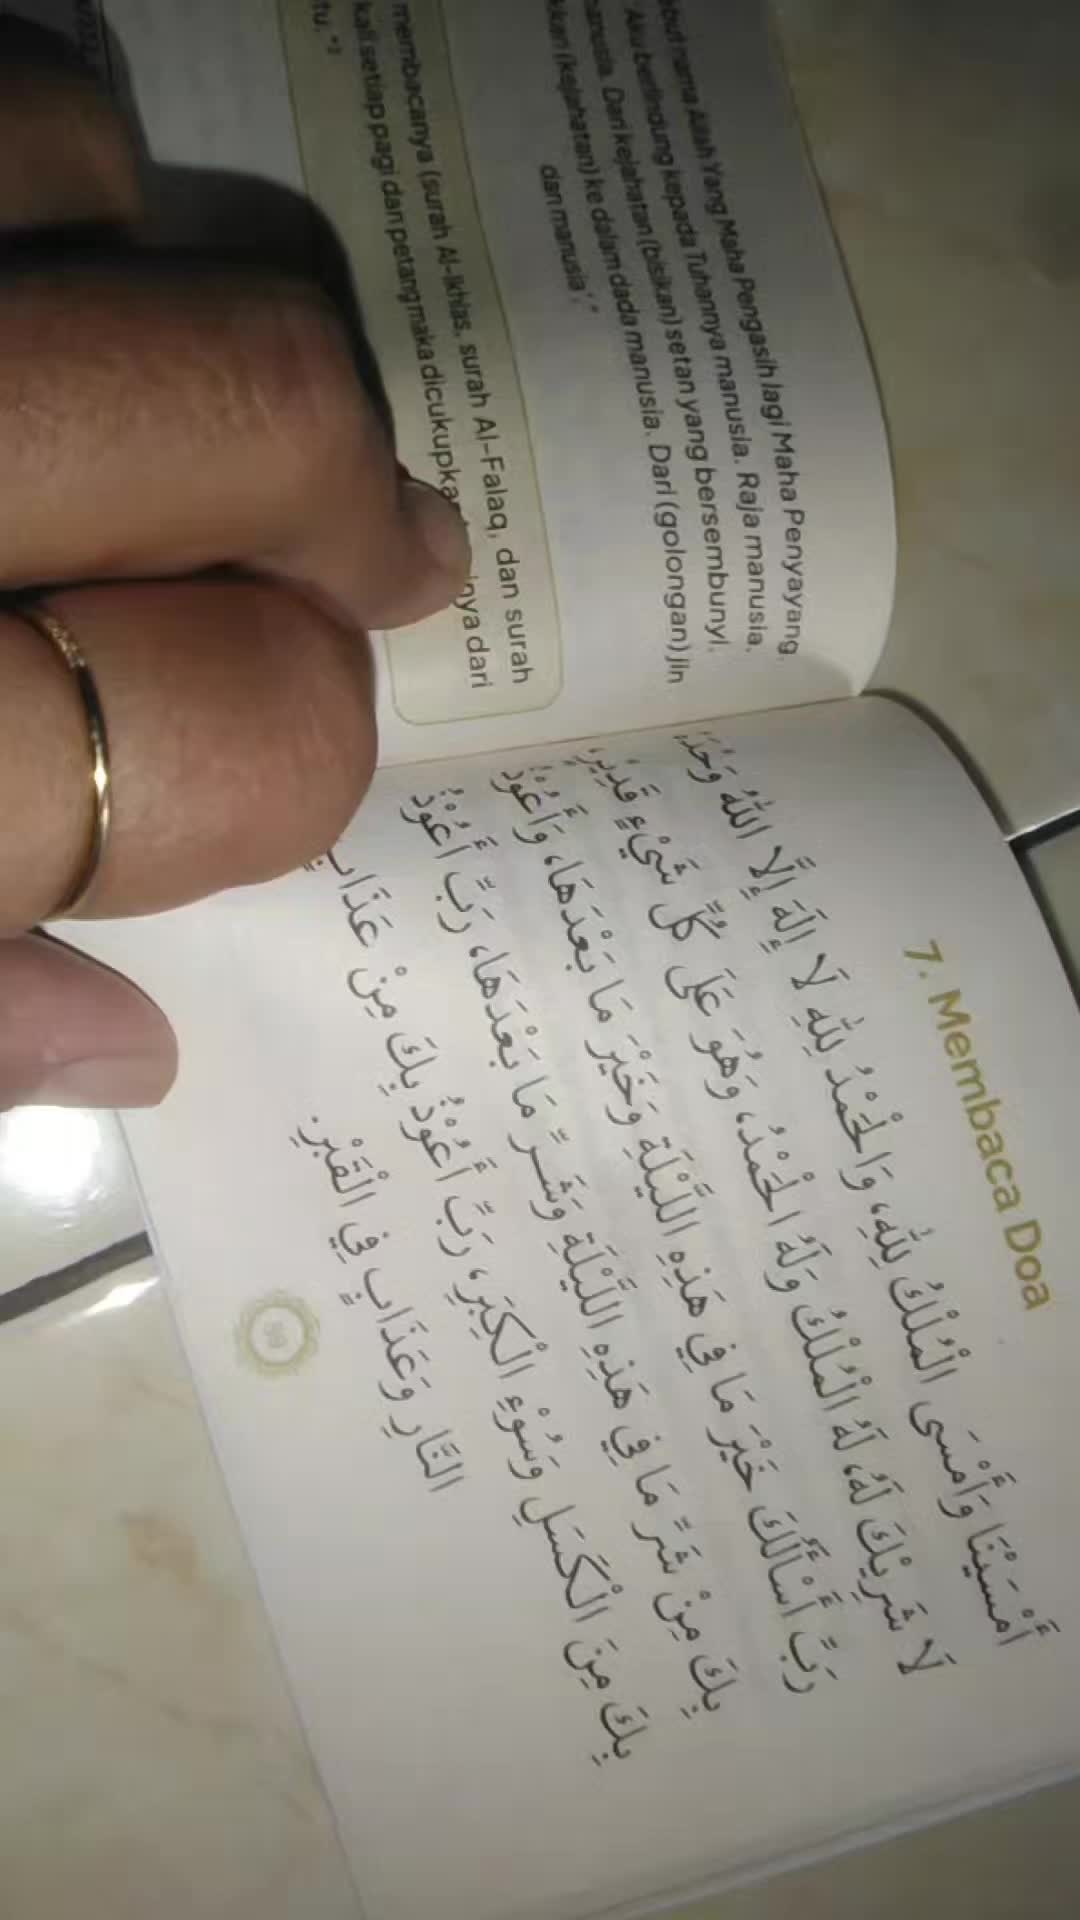 but nama Allah Yang Maha Pengasih lagi Maha Penyayang.
'Aku berlindung kepada Tuhannya manusia. Raja manusia.
anusia. Dari kejahatan (bisikan) setan yang bersembunyi.
kkan (kejahatan) ke dalam dada manusia. Dari (golongan) jin
dan manusia'."
membacanya (surah Al-Ikhlas, surah Al-Falaq, dan surah
kali setiap pagi dan petang maka dicukupka nya dari
tu."²
7. Membaca Doa
أَمْسَيْنَا وَأَمْسَى الْمُلْكُ لِلّٰهِ، وَالْحَمْدُ لِلّٰهِ لَا إِلَهَ إِلَّا اللّٰهُ وَحْدَهُ
لَا شَرِيْكَ لَهُ، لَهُ الْمُلْكُ وَلَهُ الْحَمْدُ، وَهُوَ عَلَى كُلِّ شَيْءٍ قَدِيْرٌ،
رَبِّ أَسْأَلُكَ خَيْرَ مَا فِي هَذِهِ اللَّيْلَةِ وَخَيْرَ مَا بَعْدَهَا، وَأَعُوْذُ
بِكَ مِنْ شَرِّ مَا فِي هَذِهِ اللَّيْلَةِ وَشَرِّ مَا بَعْدَهَا، رَبِّ أَعُوْذُ
بِكَ مِنَ الْكَسَلِ وَسُوْءِ الْكِبَرِ، رَبِّ أَعُوْذُ بِكَ مِنْ عَذَابٍ
النَّارِ وَعَذَابٍ فِي الْقَبْرِ.